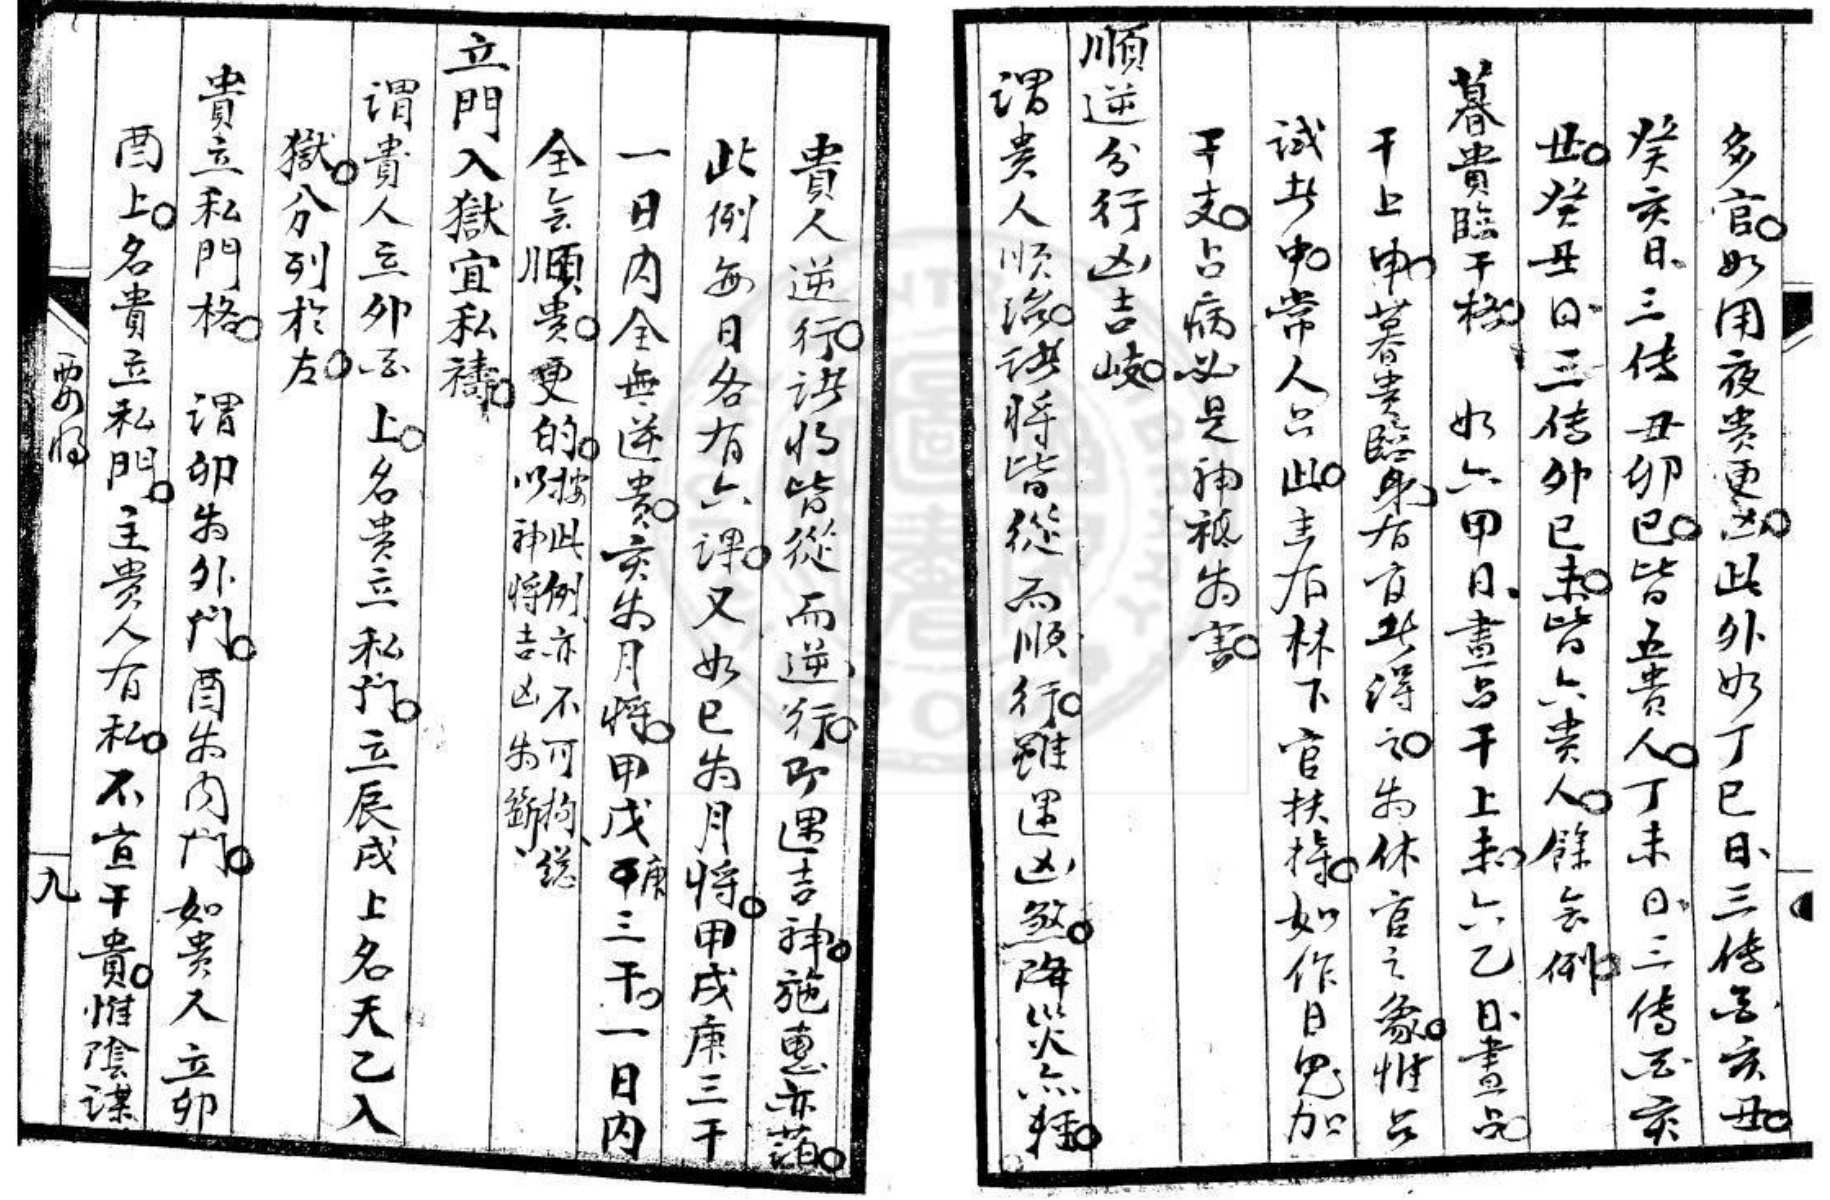 多官如用夜贵更凶此外如丁巳日三传酉亥丑
癸亥日三传丑卯巳皆五貴人丁未日三傳酉亥
丑癸丑日三传卯巳未皆六贵人餘会例
暮貴臨干格 如六甲日晝占干上未六乙日晝占
干上申暮贵臨身若官此得之为休官之象惟占
試者中常人占此主有林下官扶持如作日鬼加
干支占病必是神祗为害
順逆分行凶吉岐
谓贵人顺治諸將皆從而顺行雖遇凶煞降災亦轻
貴人逆行諸将皆從而逆行即遇吉神施惠亦薄
此例每日各有六課又如巳为月將甲戌庚三干
一日内全無逆贵亥为月將甲戊庚三干一日内
全会順貴更的按此例亦不可拘总
以神將吉凶为斷
立門入獄宜私禱
谓貴人立卯酉上名贵立私门立辰戌上名天乙入
獄分列於左
貴立私門格 谓卯为外门酉为内门如贵人立卯
酉上名貴立私門主贵人有私不宜干貴惟陰謀
要将
九